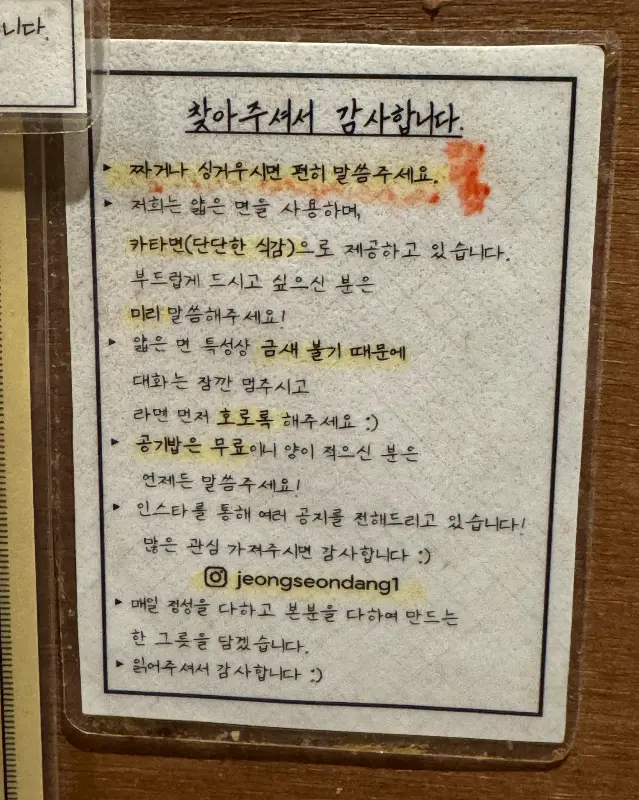 니다.
찾아주셔서 감사합니다.
▸ 짜거나 싱거우시면 편히 말씀주세요.
▸ 저희는 얇은 면을 사용하며,
카타면(단단한 식감)으로 제공하고 있습니다.
부드럽게 드시고 싶으신 분은
미리 말씀해주세요!
▸ 얇은 면 특성상 금새 불기 때문에
대화는 잠깐 멈추시고
라멘 먼저 호로록 해주세요 :)
▸ 공기밥은 무료이니 양이 적으신 분은
언제든 말씀주세요!
▸ 인스타를 통해 여러 공지를 전해드리고 있습니다!
많은 관심 가져주시면 감사합니다 :)
jeongseondang1
▸ 매일 정성을 다하고 본분을 다하여 만드는
한 그릇을 담겠습니다.
▸ 읽어주셔서 감사합니다 :)